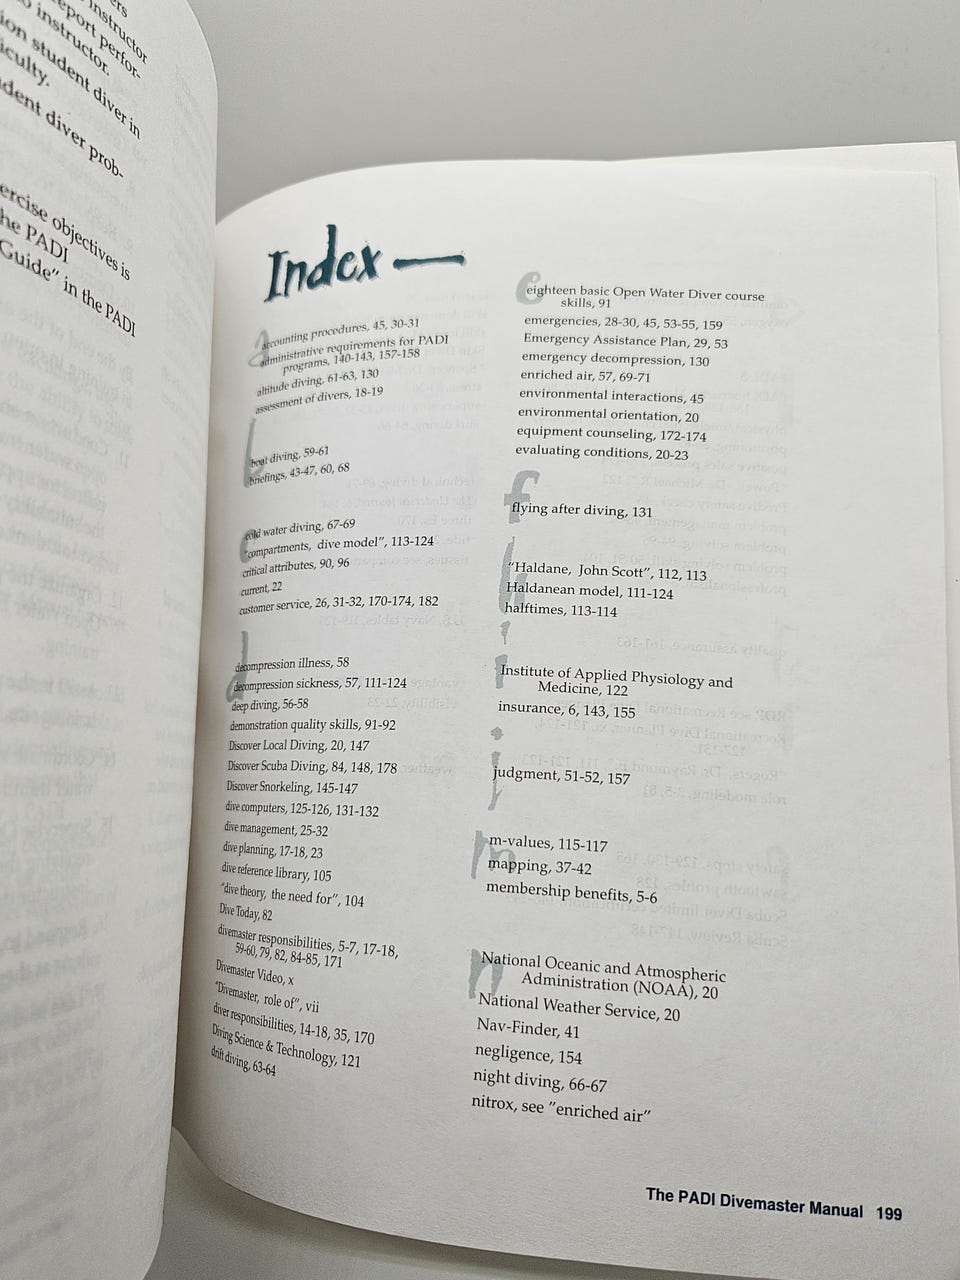 ers
instructor
eport perfor-
o instructor.
ion student diver in
iculty.
dent diver prob-
ercise objectives is
he PADI
Guide" in the PADI
Index
a
accounting procedures, 45, 30-31
administrative requirements for PADI
programs, 140-143, 157-158
altitude diving, 61-63, 130
assessment of divers, 18-19
b
boat diving, 59-61
briefings, 43-47, 60, 68
c
cold water diving, 67-69
"compartments, dive model", 113-124
critical attributes, 90, 96
current, 22
customer service, 26, 31-32, 170-174, 182
d
decompression illness, 58
decompression sickness, 57, 111-124
deep diving, 56-58
demonstration quality skills, 91-92
Discover Local Diving, 20, 147
Discover Scuba Diving, 84, 148, 178
Discover Snorkeling, 145-147
dive computers, 125-126, 131-132
dive management, 25-32
dive planning, 17-18, 23
dive reference library, 105
"dive theory, the need for", 104
Dive Today, 82
divemaster responsibilities, 5-7, 17-18,
59-60, 79, 82, 84-85, 171
Divemaster Video, x
"Divemaster, role of", vii
diver responsibilities, 14-18, 35, 170
Diving Science & Technology, 121
drift diving, 63-64
e
eighteen basic Open Water Diver course
skills, 91
emergencies, 28-30, 45, 53-55, 159
Emergency Assistance Plan, 29, 53
emergency decompression, 130
enriched air, 57, 69-71
environmental interactions, 45
environmental orientation, 20
equipment counseling, 172-174
evaluating conditions, 20-23
f
flying after diving, 131
h
"Haldane, John Scott", 112, 113
Haldanean model, 111-124
halftimes, 113-114
i
Institute of Applied Physiology and
Medicine, 122
insurance, 6, 143, 155
j
judgment, 51-52, 157
m
m-values, 115-117
mapping, 37-42
membership benefits, 5-6
n
National Oceanic and Atmospheric
Administration (NOAA), 20
National Weather Service, 20
Nav-Finder, 41
negligence, 154
night diving, 66-67
nitrox, see "enriched air"
The PADI Divemaster Manual 199